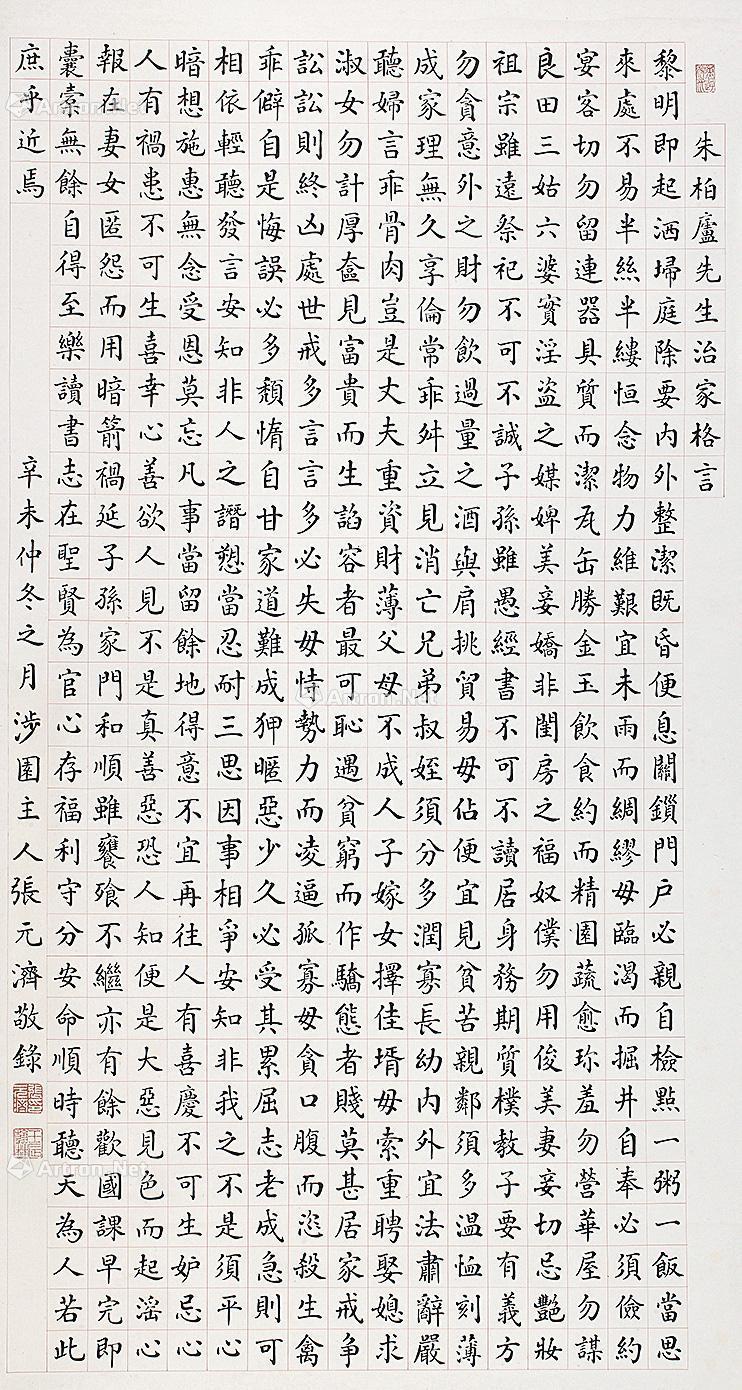 朱柏廬先生治家格言
黎明即起洒埽庭除要内外整潔既昏便息關鎖門户必親自檢點一粥一飯當思
來處不易半絲半縷恒念物力維艱宜未雨而綢繆毋臨渴而掘井自奉必須儉約
宴客切勿留連器具質而潔瓦缶勝金玉飲食約而精園蔬愈珍羞勿營華屋勿謀
良田三姑六婆實淫盗之媒婢美妾嬌非閨房之福奴僕勿用俊美妻妾切忌艷妝
祖宗雖遠祭祀不可不誠子孫雖愚經書不可不讀居身務期質樸教子要有義方
勿貪意外之財勿飲過量之酒與肩挑貿易毋佔便宜見貧苦親鄰須多温恤刻薄
成家理無久享倫常乖舛立見消亡兄弟叔姪須分多潤寡長幼内外宜法肅辭嚴
聽婦言乖骨肉豈是丈夫重資財薄父母不成人子嫁女擇佳壻毋索重聘娶媳求
淑女勿計厚奩見富貴而生諂容者最可恥遇貧窮而作驕態者賤莫甚居家戒争
訟訟則終凶處世戒多言言多必失毋恃勢力而凌逼孤寡毋貪口腹而恣殺生禽
乖僻自是悔誤必多頹惰自甘家道難成狎暱惡少久必受其累屈志老成急則可
相依輕聽發言安知非人之譖愬當忍耐三思因事相爭安知非我之不是須平心
暗想施惠無念受恩莫忘凡事當留餘地得意不宜再往人有喜慶不可生妒忌心
人有禍患不可生喜幸心善欲人見不是真善惡恐人知便是大惡見色而起淫心
報在妻女匿怨而用暗箭禍延子孫家門和順雖饔飧不繼亦有餘歡國課早完即
囊橐無餘自得至樂讀書志在聖賢為官心存福利守分安命順時聽天為人若此
庶乎近焉
辛未仲冬之月涉園主人張元濟敬錄
Artron.Net
Artron.Net
Artron.Net